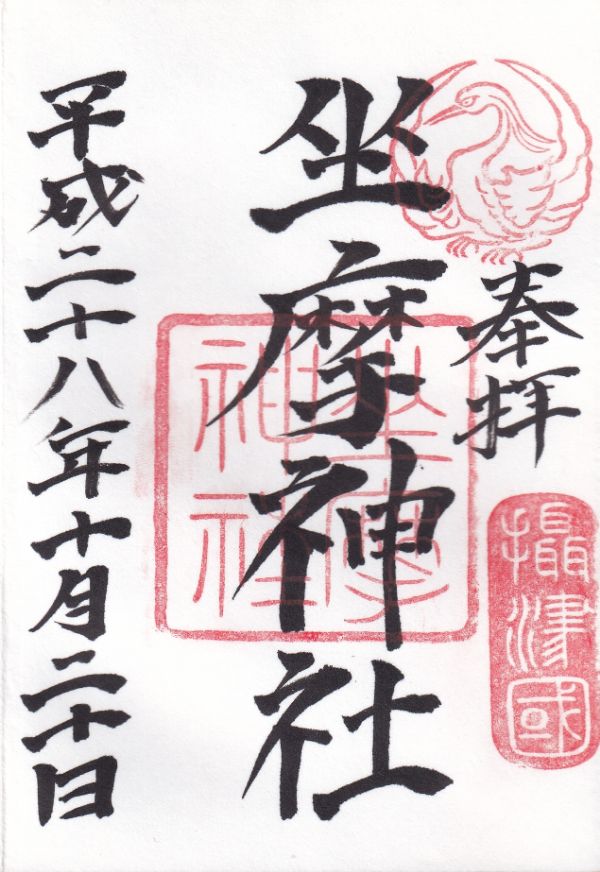 奉拝
攝津國
坐摩神社
坐摩神社
平成二十八年十月二十日